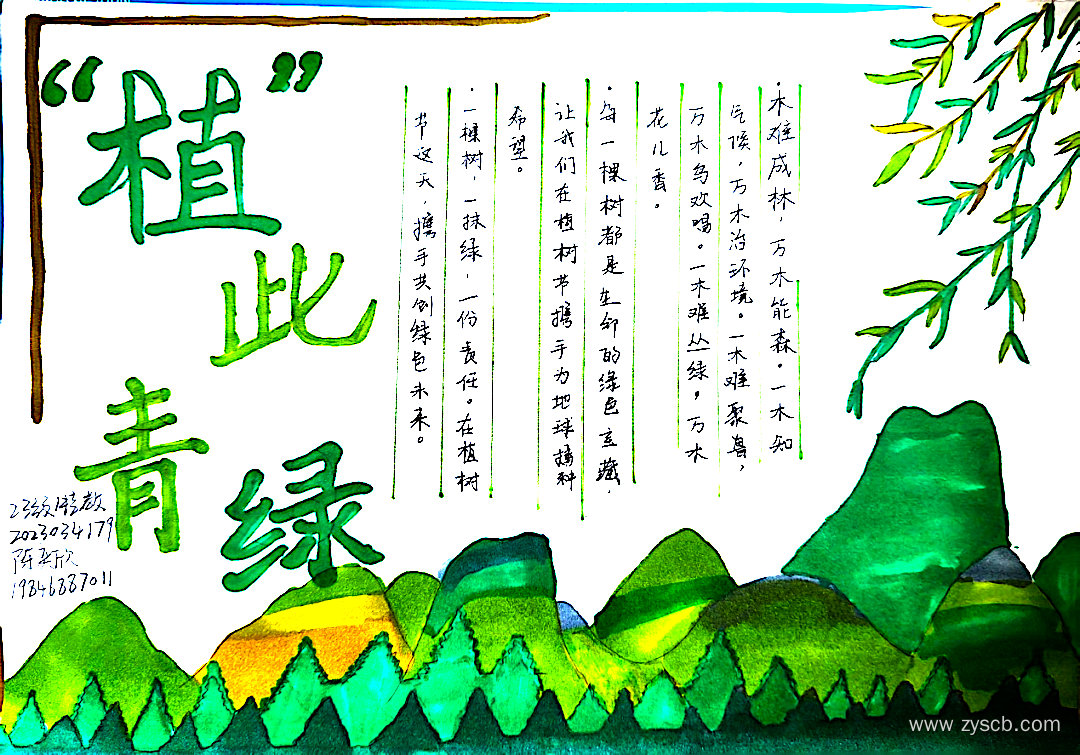 “植”
此
青
绿
·木难成林,万木能森。一木知
气候,万木治环境。一木难聚兽,
万木鸟欢唱。一木难丛绿,万木
花儿香。
·每一棵树都是生命的绿色宝藏,
让我们在植树节携手为地球播种
希望。
·一棵树,一抹绿,一份责任。在植树
节这天,携手共创绿色未来。
23级教
2023034179
陈欣
19846887011
www.zyscb.com